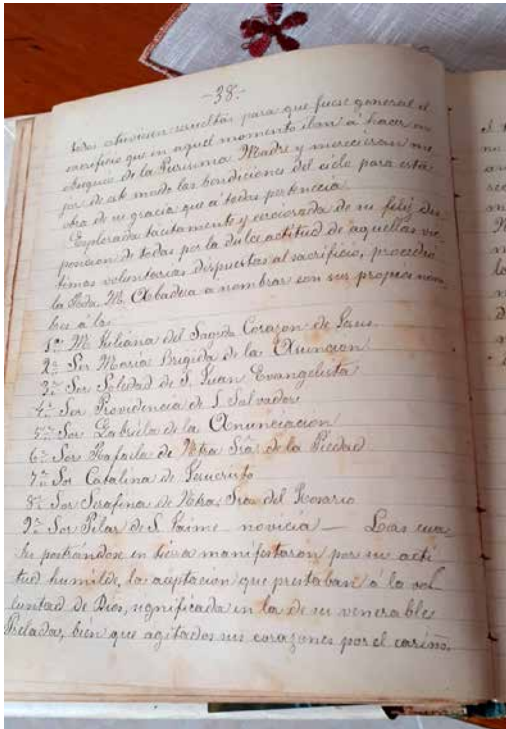 -38-
soras atrevieren resueltas para que fuese general el
sacrificio que en aquel momento iban á hacer en
obsequio de la Purisima Madre y mereciran me
jor de este modo las bendiciones del cielo para esta
obra de su gracia que á todas pertenecia.
Explorada tacitamente y cerciorada de su feliz dis
posicion de todas por la dulce actitud de aquellas vic
timas voluntarias dispuestas al sacrificio, procedió
la Rda. M. Abadesa a nombrar con sus propios nom
bres á las
1ª M. Juliana del Sagrado Corazon de Jesus
2ª Sor Maria Brigida de la Asuncion
3ª Sor Soledad de S. Juan Evangelista
4ª Sor Providencia de S. Salvador
5ª Sor Gabriela de la Anunciacion
6ª Sor Rafaela de Ntra Sra. de la Piedad
7ª Sor Catalina de Jesucristo
8ª Sor Serafina de Ntra. Sra. del Rosario
9ª Sor Pilar de S. Jaime novicia — Las cua
les postrandose en tierra manifestaron por su acti
tud humilde, la aceptacion que prestaban á la vol
luntad de Dios, significada en la de su venerables
Prelada, bien que agitados sus corazones por el cariño,